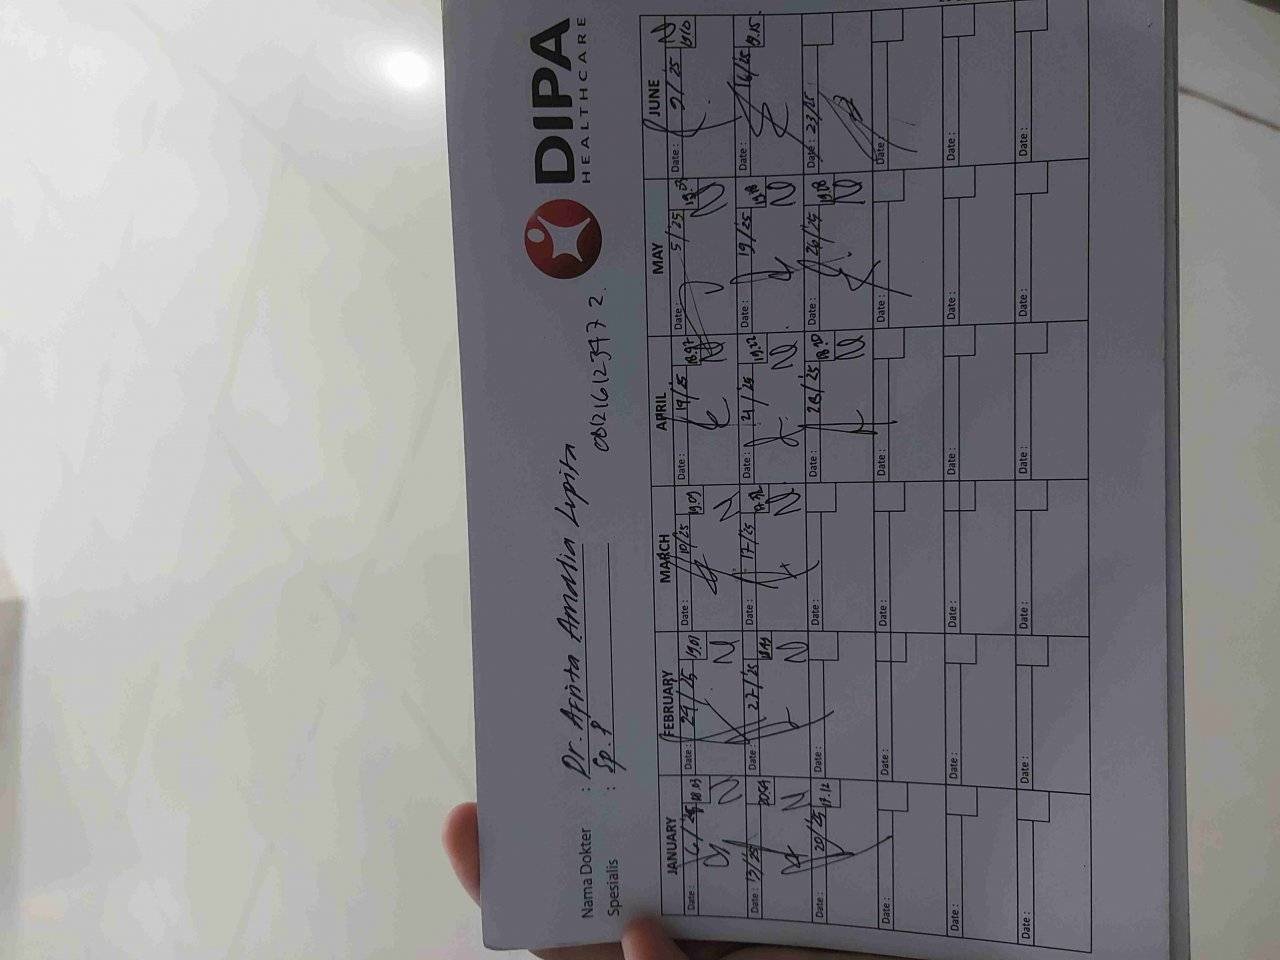 DIPA
HEALTHCARE
Nama Dokter : Dr. Afinta Amalia Lupita
Spesialis : Sp. P 081216123472.
JANUARY FEBRUARY MARCH APRIL MAY JUNE
Date : 6/25 18.03 Date : 24/25 19.01 Date : 10/25 19.09 Date : 19/25 Date : 5/25 Date : 2/25
N N N N N N
Date : 13/25 2054 Date : 27/25 Date : 17/25 Date : 21/25 19.22 Date : 19/25 Date : 16/25 19.15.
N N N N N
Date : 20/25 Date : Date : Date : 28/25 Date : 26/25 Date : 23/25
N N
Date : Date : Date : Date : Date : Date :
Date : Date : Date : Date : Date : Date :
Date : Date : Date : Date : Date : Date :